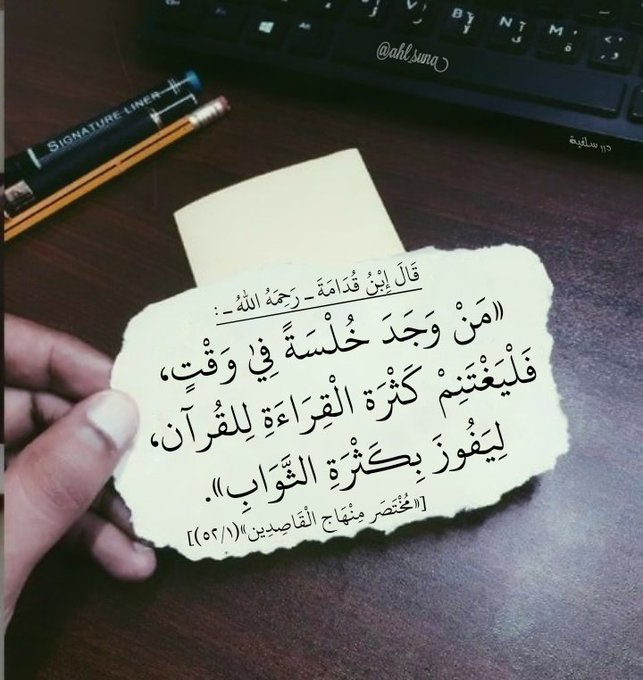 @ahl_suna
درر سلفية
SIGNATURE LINER
V
B
N
M
قَالَ إِبْنُ قُدَامَةَ ـ رَحِمَهُ اللهُ ـ :
«مَنْ وَجَدَ خُلْسَةً فِي وَقْتٍ،
فَلْيَغْتَنِمْ كَثْرَة الْقِرَاءَةِ لِلقُرآن،
لِيَفُوزَ بِكَثْرَةِ الثَّوَابِ».
[«مُخْتَصَر مِنْهَاج الْقَاصِدِين»(٥٢/١)]